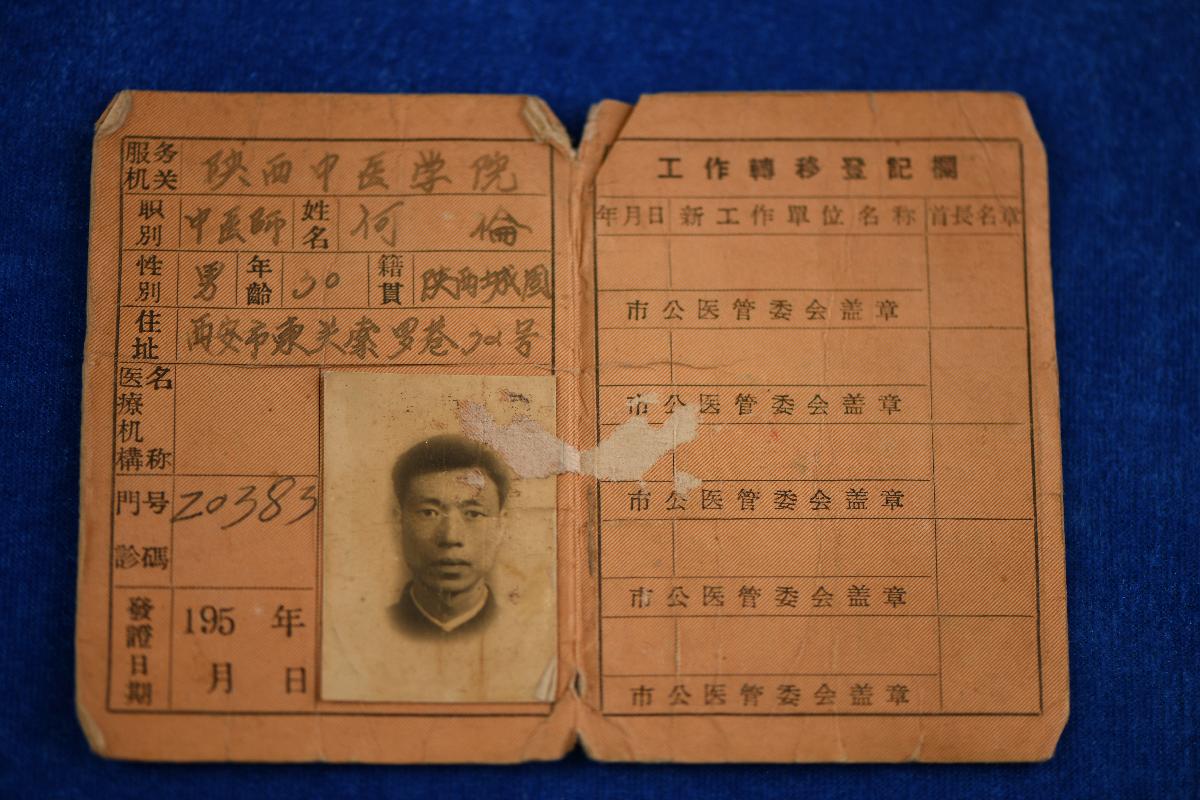 服务机关 陕西中医学院
职别 中医師 姓名 何倫
性別 男 年齡 30 籍貫 陕西城固
住址 西安市東关索罗巷
医療机構名称
門診号碼 20383
發證日期 195 年
月 日
工作轉移登記欄
年月日 新工作單位名称 首長名章
市公医管委会盖章
市公医管委会盖章
市公医管委会盖章
市公医管委会盖章
市公医管委会盖章